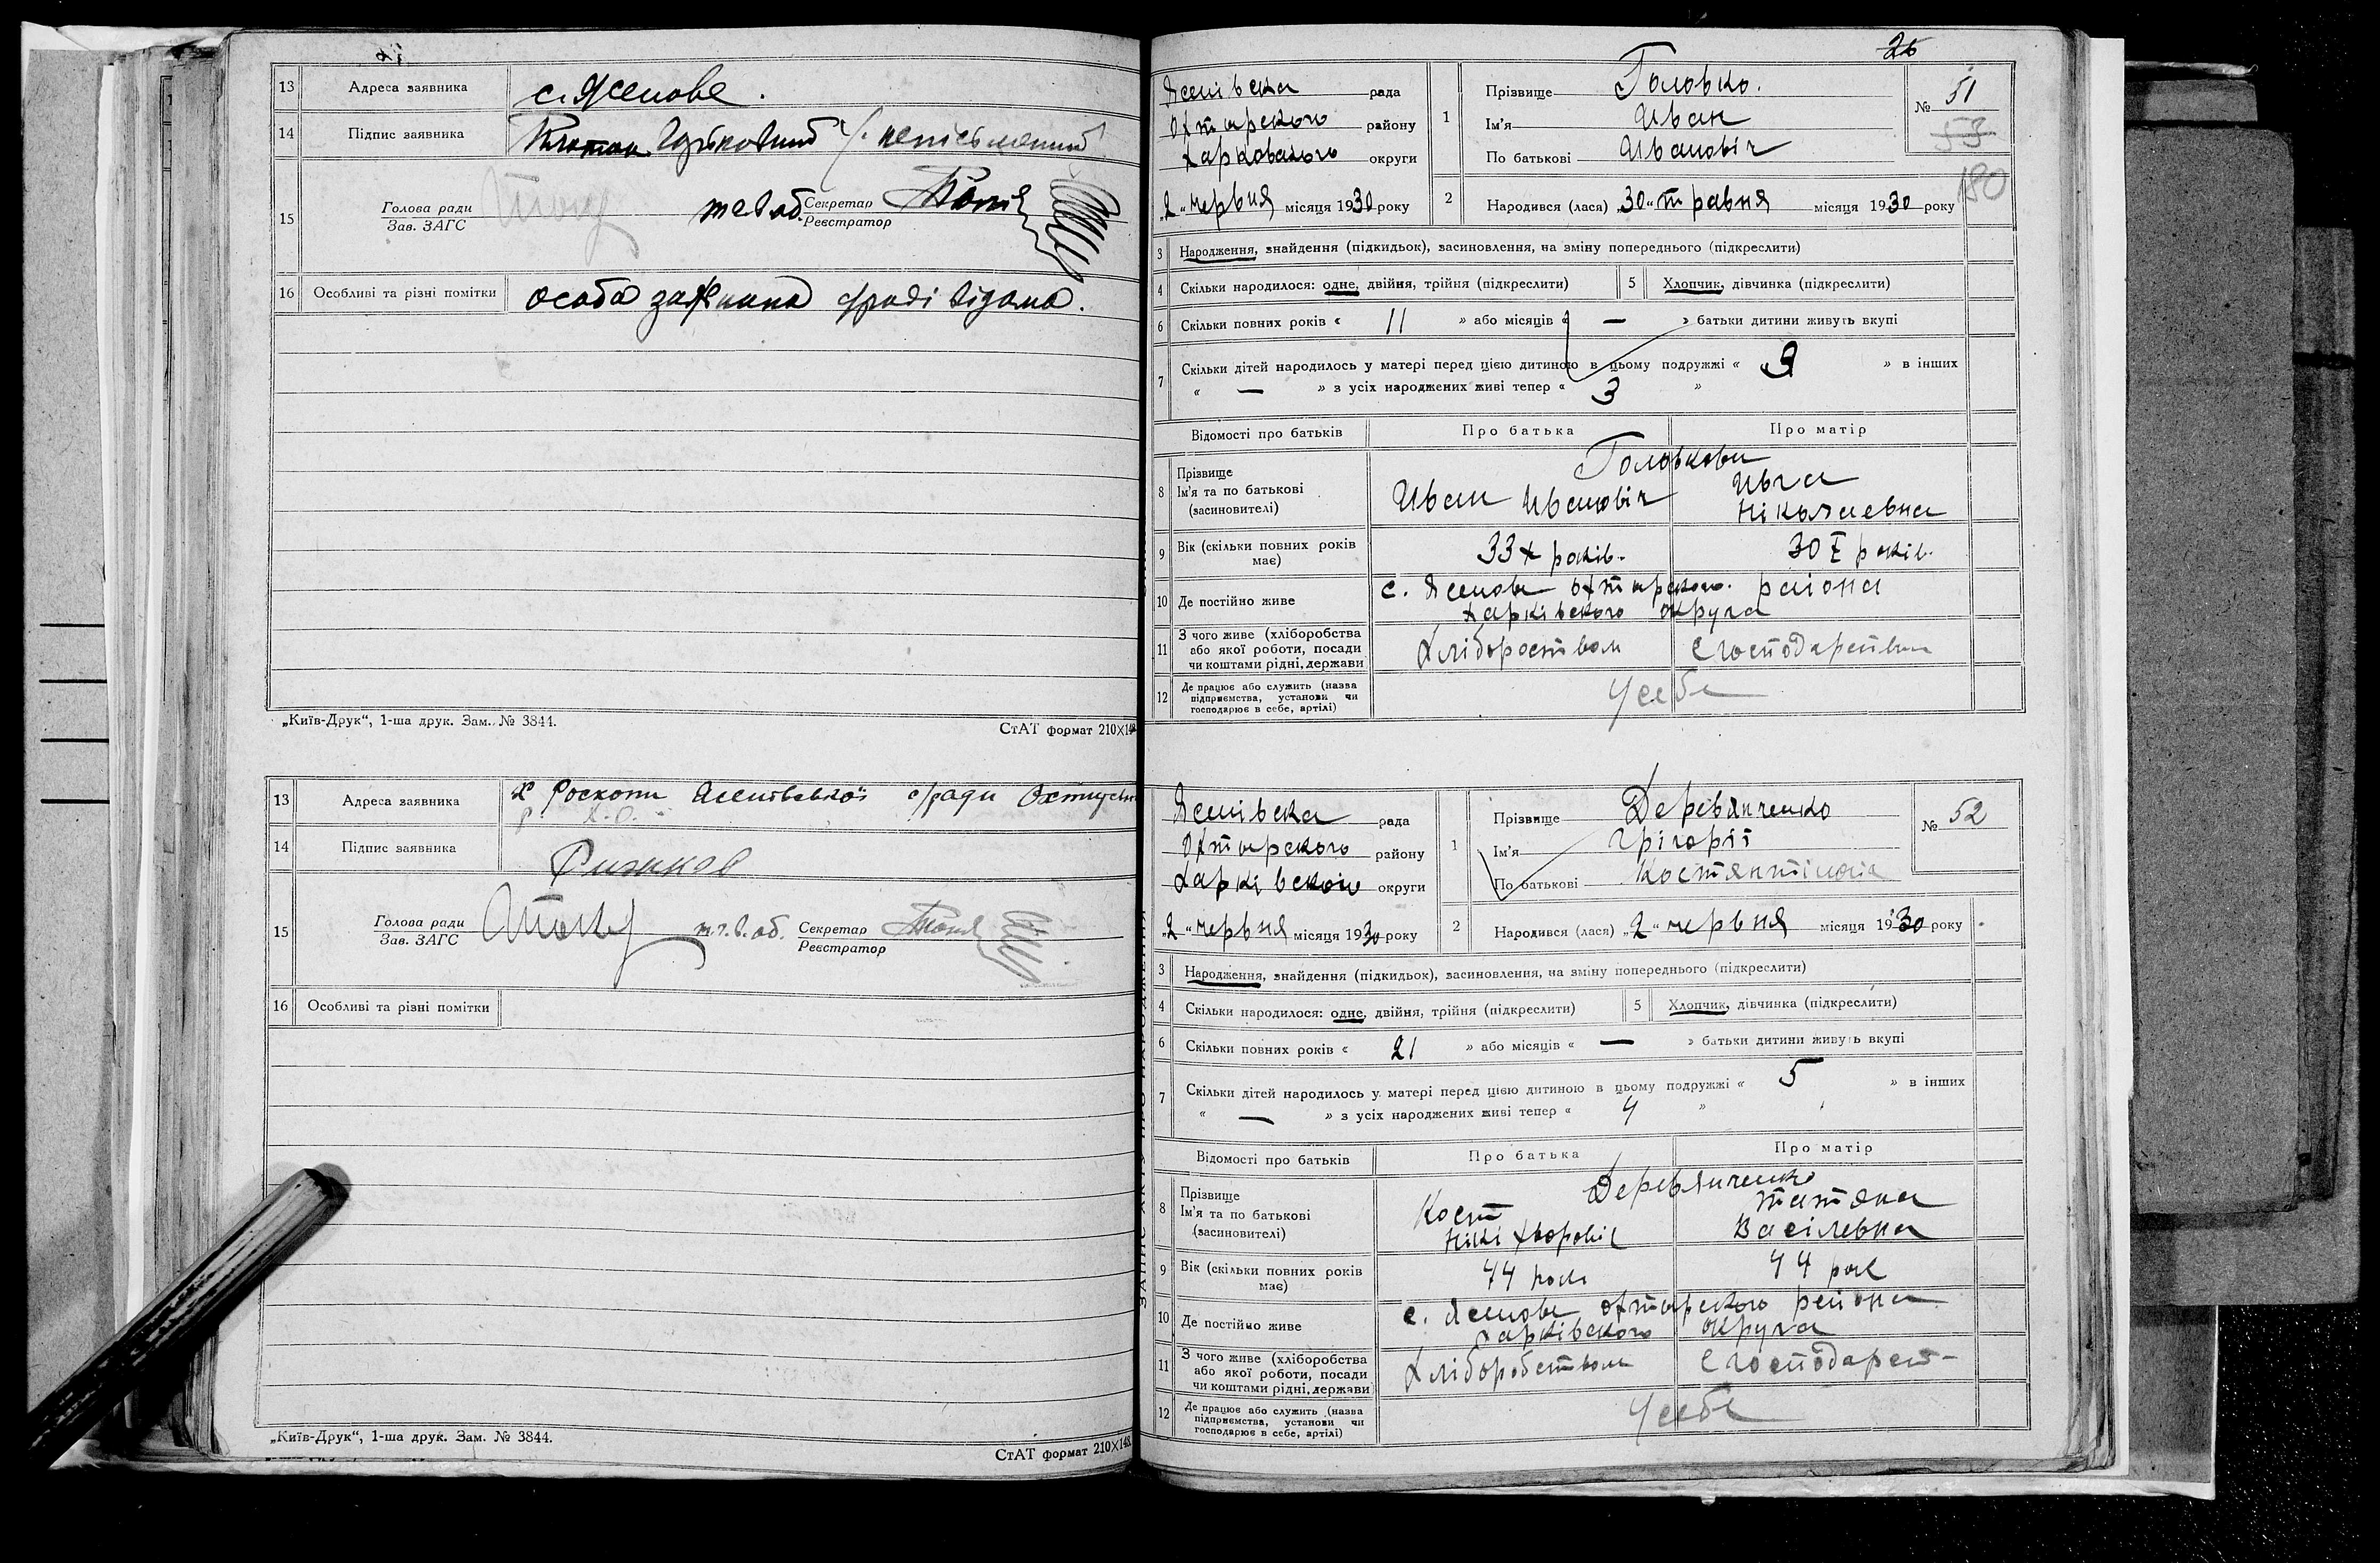 13 Адреса заявника с. Ясенове.
14 Підпис заявника неписьменний
15 Голова ради
Зав. ЗАГС
Секретар
Реєстратор
16 Особливі та різні помітки особа заявника с/раді відома.
„Київ-Друк“, 1-ша друк. Зам. № 3844.
СтАТ формат 210×148
13 Адреса заявника х Роскопи Ясенівської с/ради
14 Підпис заявника
15 Голова ради
Зав. ЗАГС
т.в.об. Секретар
Реєстратор
16 Особливі та різні помітки
„Київ-Друк“, 1-ша друк. Зам. № 3844.
СтАТ формат 210×148
26
Ясенівска рада
Охтирского району
округи
„2“ червня місяця 1930 року
1 Прізвище Головко.
Ім’я Иван
По батькові Ивановіч
№ 51
53
180
2 Народився (лася) „30“ травня місяця 1930 року
3 Народження, знайдення (підкидьок), засиновлення, на зміну попереднього (підкреслити)
4 Скільки народилося: одне, двійня, трійня (підкреслити) 5 Хлопчик, дівчинка (підкреслити)
6 Скільки повних років « 11 » або місяців « — » батьки дитини живуть вкупі
7 Скільки дітей народилось у матері перед цією дитиною в цьому подружжі « 3 » в інших
« — » з усіх народжених живі тепер « 3 »
Відомості про батьків Про батька Про матір
8 Прізвище
Ім’я та по батькові
(засиновителі)
Головкови
Иван Ивановіч
Ивга
Ніколаевна
9 Вік (скільки повних років має) 33 років. 30 років.
10 Де постійно живе с. Ясенове Охтирского района
Харківского округа
11 З чого живе (хліборобства
або якої роботи, посади
чи коштами рідні, держави
Хлібороством С господарства
12 Де працює або служить (назва
підприємства, установи чи
господарює в себе, артілі)
У себе
Ясенівска рада
Охтирского району
Харківского округи
„2“ червня місяця 1930 року
1 Прізвище Деревянченко
Ім’я Грігорії
По батькові Костянтіновіч
№ 52
2 Народився (лася) „2“ червня місяця 1930 року
3 Народження, знайдення (підкидьок), засиновлення, на зміну попереднього (підкреслити)
4 Скільки народилося: одне, двійня, трійня (підкреслити) 5 Хлопчик, дівчинка (підкреслити)
6 Скільки повних років « 21 » або місяців « — » батьки дитини живуть вкупі
7 Скільки дітей народилось у матері перед цією дитиною в цьому подружжі « 5 » в інших
« — » з усіх народжених живі тепер « 4 »
Відомості про батьків Про батька Про матір
8 Прізвище
Ім’я та по батькові
(засиновителі)
Деревянченко
Кост
Нікіхворовіч
Татяна
Васілевна
9 Вік (скільки повних років має) 44 роки 44 рок
10 Де постійно живе с. Ясенове Охтирского района
Харківского округа
11 З чого живе (хліборобства
або якої роботи, посади
чи коштами рідні, держави
Хліборобством С господарст-
12 Де працює або служить (назва
підприємства, установи чи
господарює в себе, артілі)
У себе